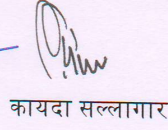 कायदा सल्लागार